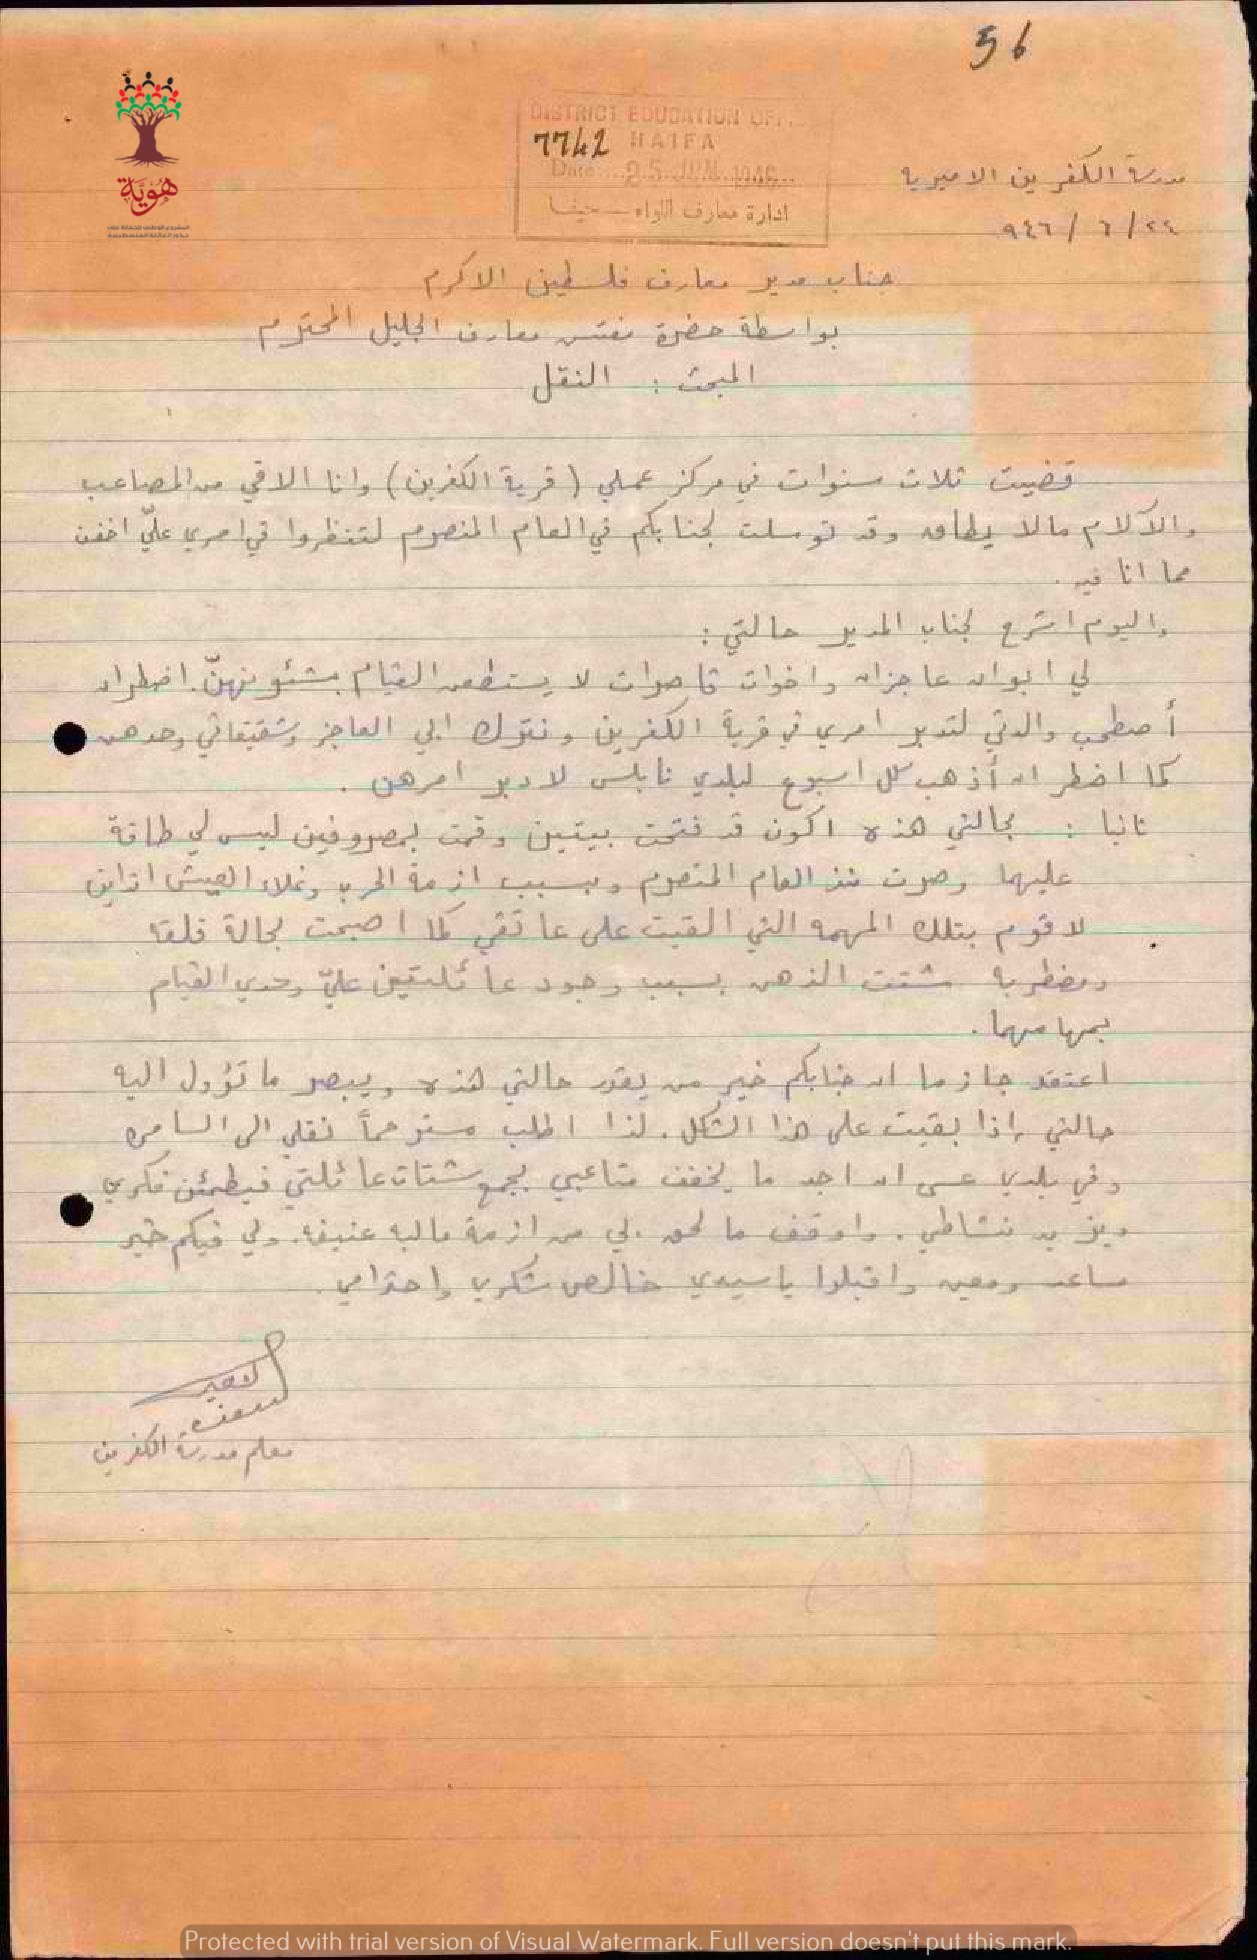 56
هوية
المشروع الوطني للحفاظ على
جذور العائلة الفلسطينية
DISTRICT EDUCATION OF...
7742 HAIFA
Date 25 JUN 1946
ادارة معارف اللواء — حيفا
مدرسة الكفرين الاميرية
٢٤ / ٦ / ٩٤٦
جناب مدير معارف فلسطين الاكرم
بواسطة حضرة مفتش معارف الجليل المحترم
المبحث : النقل
قضيت ثلاث سنوات في مركز عملي (قرية الكفرين) وانا الاقي من المصاعب
والآلام مالا يطاق وقد توسلت لجنابكم في العام المنصرم لتنظروا في امري علّي اخفف
مما انا فيه .
واليوم اشرح لجناب المدير حالتي :
لي ابوان عاجزان واخوات قاصرات لا يستطعن القيام بشئونهنّ . اضطر ان
أصطحب والدتي لتدبر امري في قرية الكفرين ونترك ابي العاجز وشقيقاتي وحدهن
كما اضطر ان أذهب كل اسبوع لبلدي نابلس لادبر امرهن .
ثانيا : بحالتي هذه اكون قد فتحت بيتين وقمت بمصروفين ليس لي طاقة
عليهما وصرت منذ العام المنصرم وبسبب ازمة الحرب وغلاء العيش اتداين
لاقوم بتلك المهمه التي القيت على عاتقي كما اصبحت بحالة قلقه
ومضطربه مشتت الذهن بسبب وجود عائلتين عليّ وحدي القيام
بمهامهما .
اعتقد جازما ان جنابكم خير من يقدر حالتي هذه ويبصر ما تؤول اليه
حالتي اذا بقيت على هذا الشكل . لذا اطلب مسترحماً نقلي الى السامره
وفي بلدي عسى ان اجد ما يخفف متاعبي بجمع شتات عائلتي فيطمئن فكري
ويزيد نشاطي . واوقف ما لحق بي من ازمة ماليه عنيفه . ولي فيكم خير
مساعد ومعين واقبلوا يا سيدي خالص شكري واحترامي .
معلم مدرسة الكفرين
Protected with trial version of Visual Watermark. Full version doesn't put this mark.